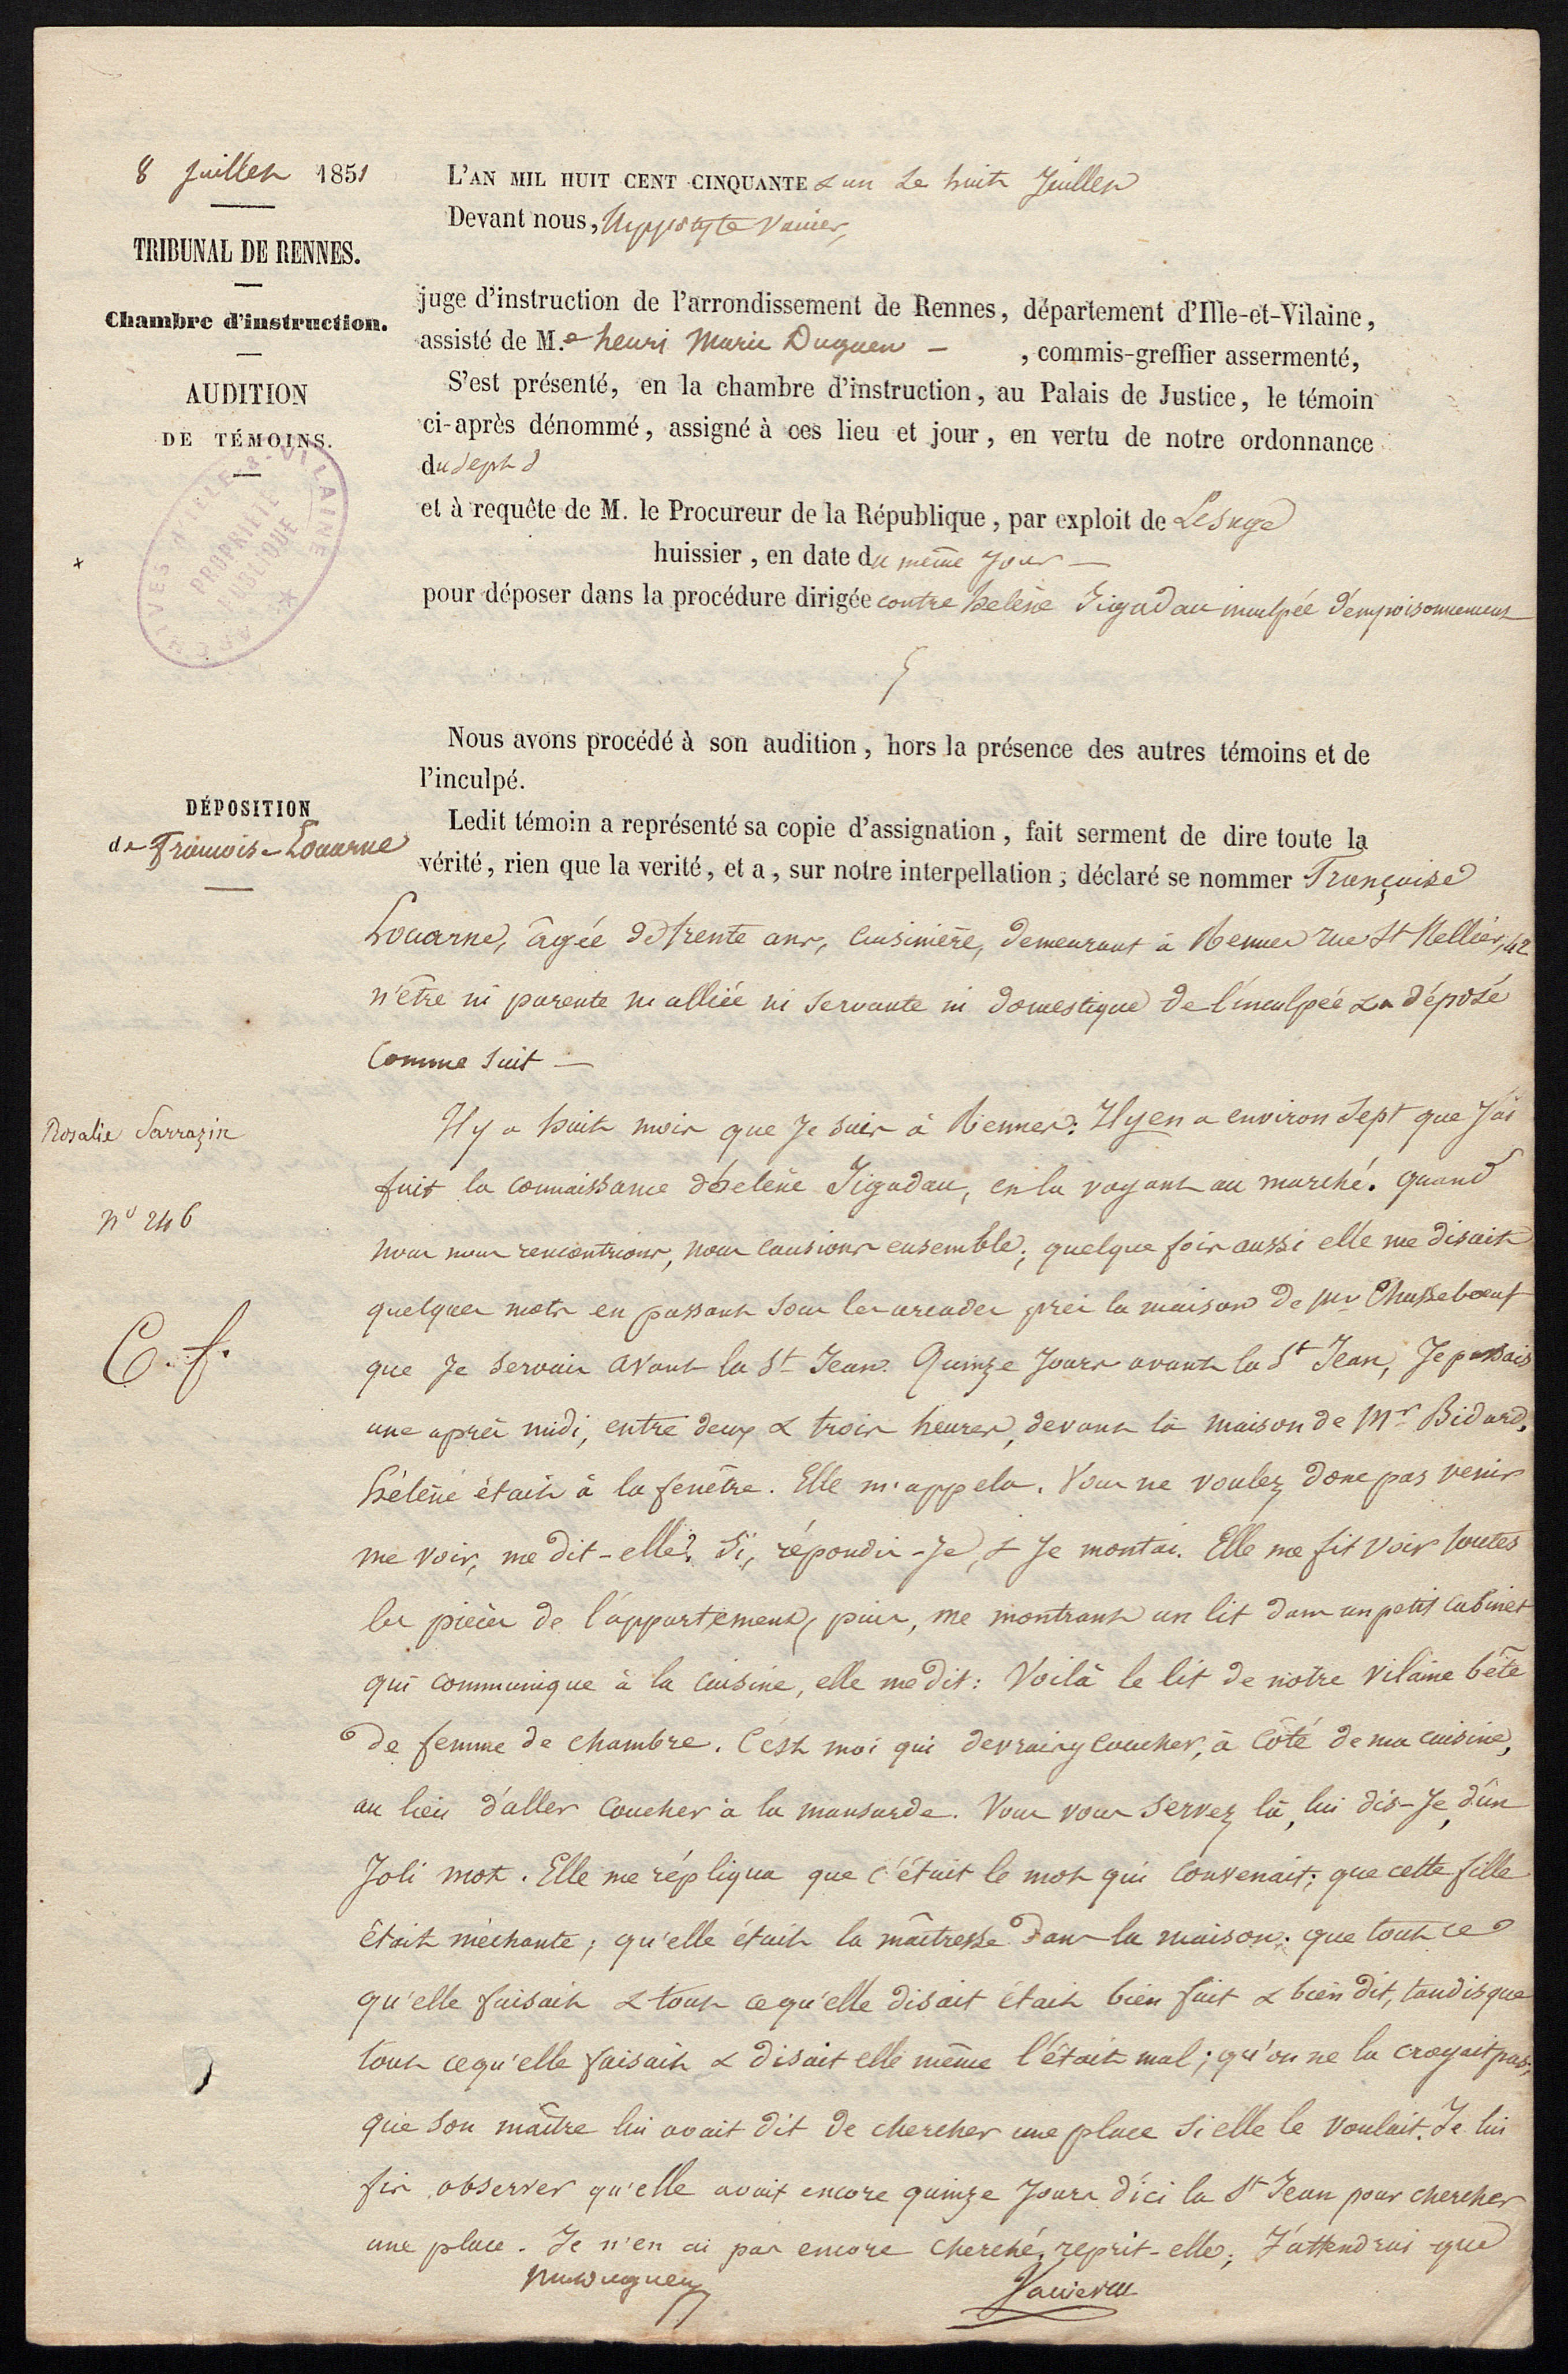 8 Juillet 1851
TRIBUNAL DE RENNES.
Chambre d'instruction.
AUDITION
DE TÉMOINS.
ARCHIVES D'ILLE-&-VILAINE
PROPRIÉTÉ
PUBLIQUE
L'AN MIL HUIT CENT CINQUANTE & un Le huit Juillet
Devant nous, hyppolyte Vanier,
juge d'instruction de l'arrondissement de Rennes, département d'Ille-et-Vilaine,
assisté de M.e henri Marie Duguen — , commis-greffier assermenté,
S'est présenté, en la chambre d'instruction, au Palais de Justice, le témoin
ci-après dénommé, assigné à ces lieu et jour, en vertu de notre ordonnance
du sept Jt
et à requête de M. le Procureur de la République, par exploit de Lesage
huissier, en date du même jour —
pour déposer dans la procédure dirigée contre helène Jigadau inculpée d'empoisonnement
Nous avons procédé à son audition, hors la présence des autres témoins et de
l'inculpé.
DÉPOSITION
de Françoise Louarne
Ledit témoin a représenté sa copie d'assignation, fait serment de dire toute la
vérité, rien que la verité, et a, sur notre interpellation, déclaré se nommer Françoise
Louarne, âgée de trente ans, cuisinière, demeurant à Rennes rue St Mellier, 42
n'être ni parente ni alliée ni servante ni domestique de l'inculpée & a déposé
Comme suit —
Rosalie Sarrazin
n° 246
C. f.
Il y a huit mois que Je suis à Rennes: Il y en a environ sept que J'ai
fait la connaissance d'helène Jigadau, en la voyant au marché. quand
nous nous rencontrions, nous causions ensemble; quelque fois aussi elle me disait
quelques mots en passant sous les arcades près la maison de Mr Chasseboeuf
que Je servais avant la St Jean. Quinze Jours avant la St Jean, Je passais
une après midi, entre deux & trois heures, devant la maison de Mr Bidard.
hélène était à la fenêtre. Elle m'appela. Vous ne voulez donc pas venir
me voir, me dit-elle? Si, répondis-Je, & Je montai. Elle me fit voir toutes
les pièces de l'appartement, puis, me montrant un lit dans un petit cabinet
qui communique à la cuisine, elle me dit: Voilà le lit de nôtre vilaine bête
de femme de chambre. C'est moi qui devrais y coucher, à côté de ma cuisine,
au lieu d'aller coucher à la mansarde. Vous vous servez là, lui dis-Je, d'un
Joli mot. Elle me répliqua que c'était le mot qui convenait; que cette fille
était méchante; qu'elle était la maîtresse dans la maison; que tout ce
qu'elle faisait & tout ce qu'elle disait était bien fait & bien dit, tandis que
tout ce qu'elle faisait & disait elle même l'était mal; qu'on ne la croyait pas;
que son maître lui avait dit de chercher une place si elle le voulait. Je lui
fis observer qu'elle avait encore quinze Jours d'ici la St Jean pour chercher
une place. Je n'en ai pas encore cherché, reprit-elle; J'attendrai que
hmduguen
Vanier